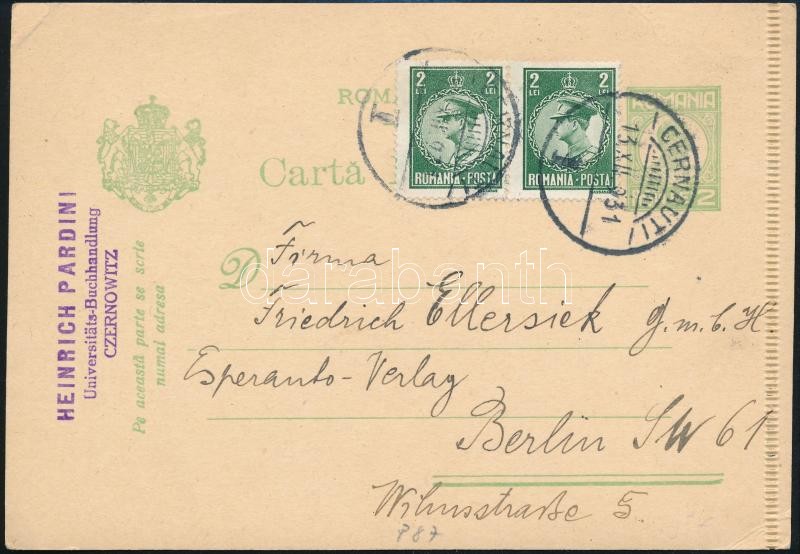 ROMANIA
2 LEI 2 LEI
ROMANIA·POSTA
2 LEI 2 LEI
ROMANIA·POSTA
ROMANIA
2
CERNAUTI
13.XII.931
Cartă
HEINRICH PARDINI
Universitäts-Buchhandlung
CZERNOWITZ
Pe această parte se scrie
numai adresa
D
Firma
Friedrich Ellersiek G.m.b.H.
Esperanto-Verlag
Berlin SW 61
Wilmsstraße 5
P 87
darabanth